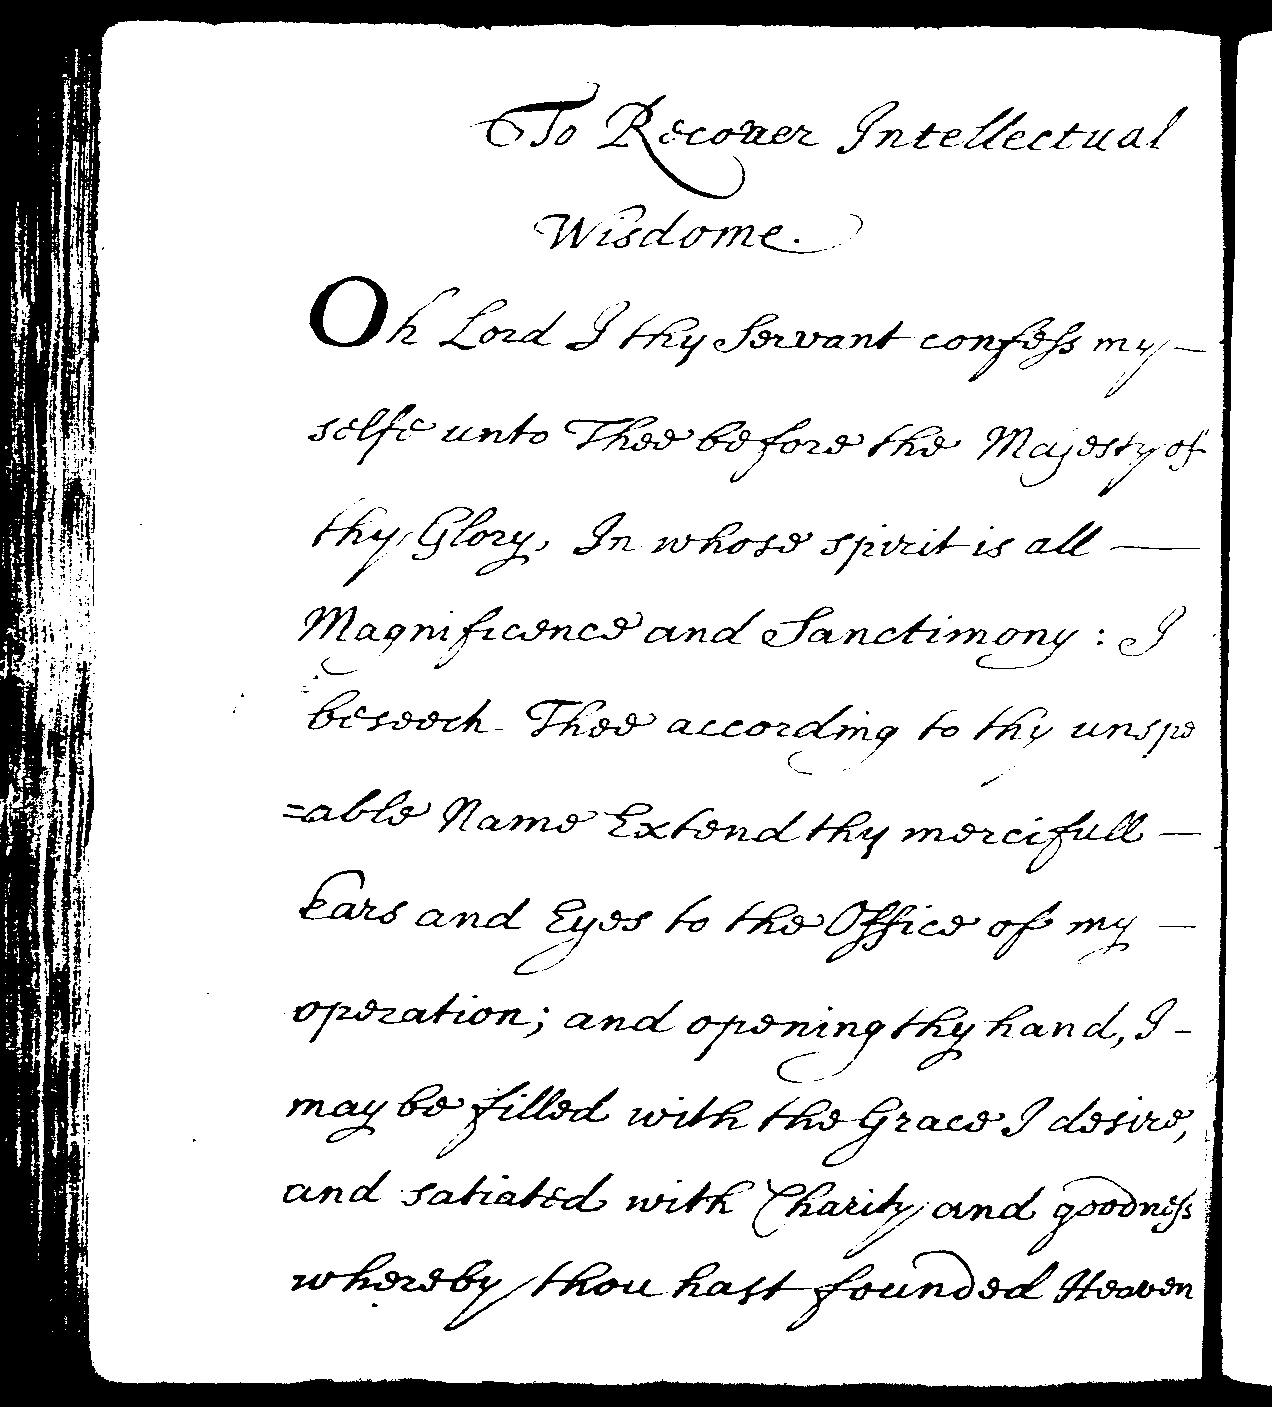 To Recouer Intellectual
Wisdome.
Oh Lord I thy Servant confess my —
selfe unto Thee before the Majesty of
thy Glory, In whose spirit is all —
Magnificence and Sanctimony : I
beseech Thee according to thy unspe
=able Name Extend thy mercifull —
Ears and Eyes to the Office of my —
operation; and opening thy hand, I -
may be filled with the Grace I desire,
and satiated with Charity and goodness
whereby thou hast founded Heaven